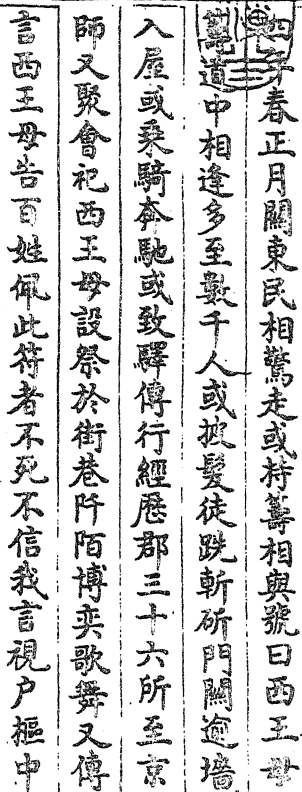 四年春正月關東民相驚走或持籌相與號曰西王母
籌道中相逢多至數千人或披髮徒跣斬斫門關逾墻
入屋或乘騎奔馳或致驛傳行經歷郡三十六所至京
師又聚會祀西王母設祭於街巷阡陌博奕歌舞又傳
言西王母告百姓佩此符者不死不信我言視户樞中